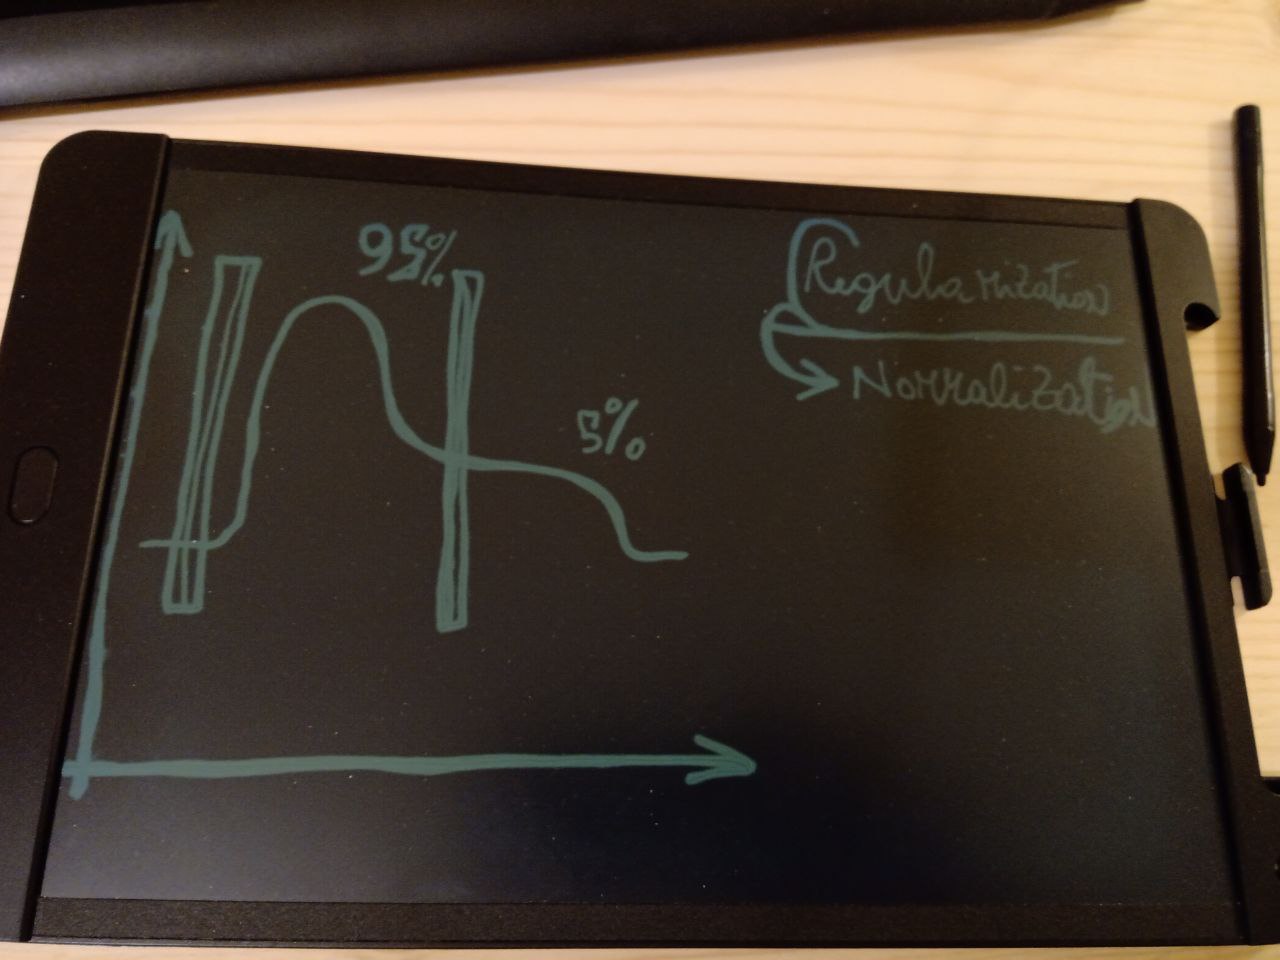 95%
5%
Regularization
Normalization